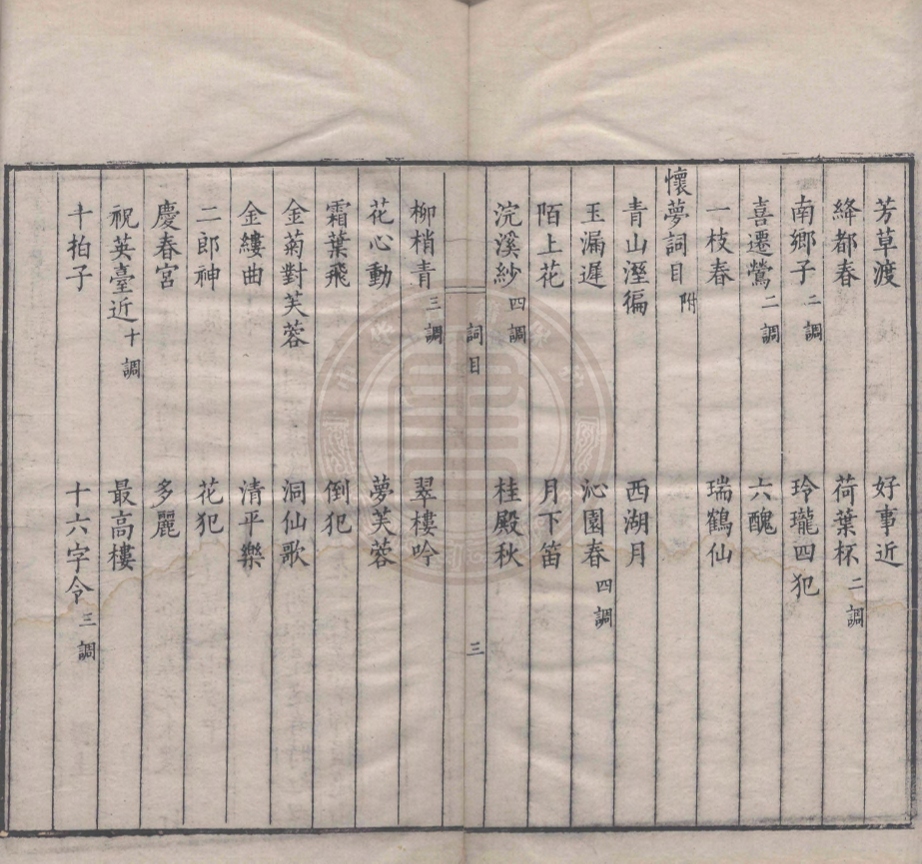 芳草渡 好事近
絳都春 荷葉杯二調
南鄉子二調 玲瓏四犯
喜遷鶯二調 六醜
一枝春 瑞鶴仙
懷夢詞目附
青山溼徧 西湖月
玉漏遲 沁園春四調
陌上花 月下笛
浣溪紗四調 桂殿秋
詞目 三
柳梢青三調 翠樓吟
花心動 夢芙蓉
霜葉飛 倒犯
金菊對芙蓉 洞仙歌
金縷曲 清平樂
二郎神 花犯
慶春宮 多麗
祝英臺近十調 最高樓
十拍子 十六字令三調